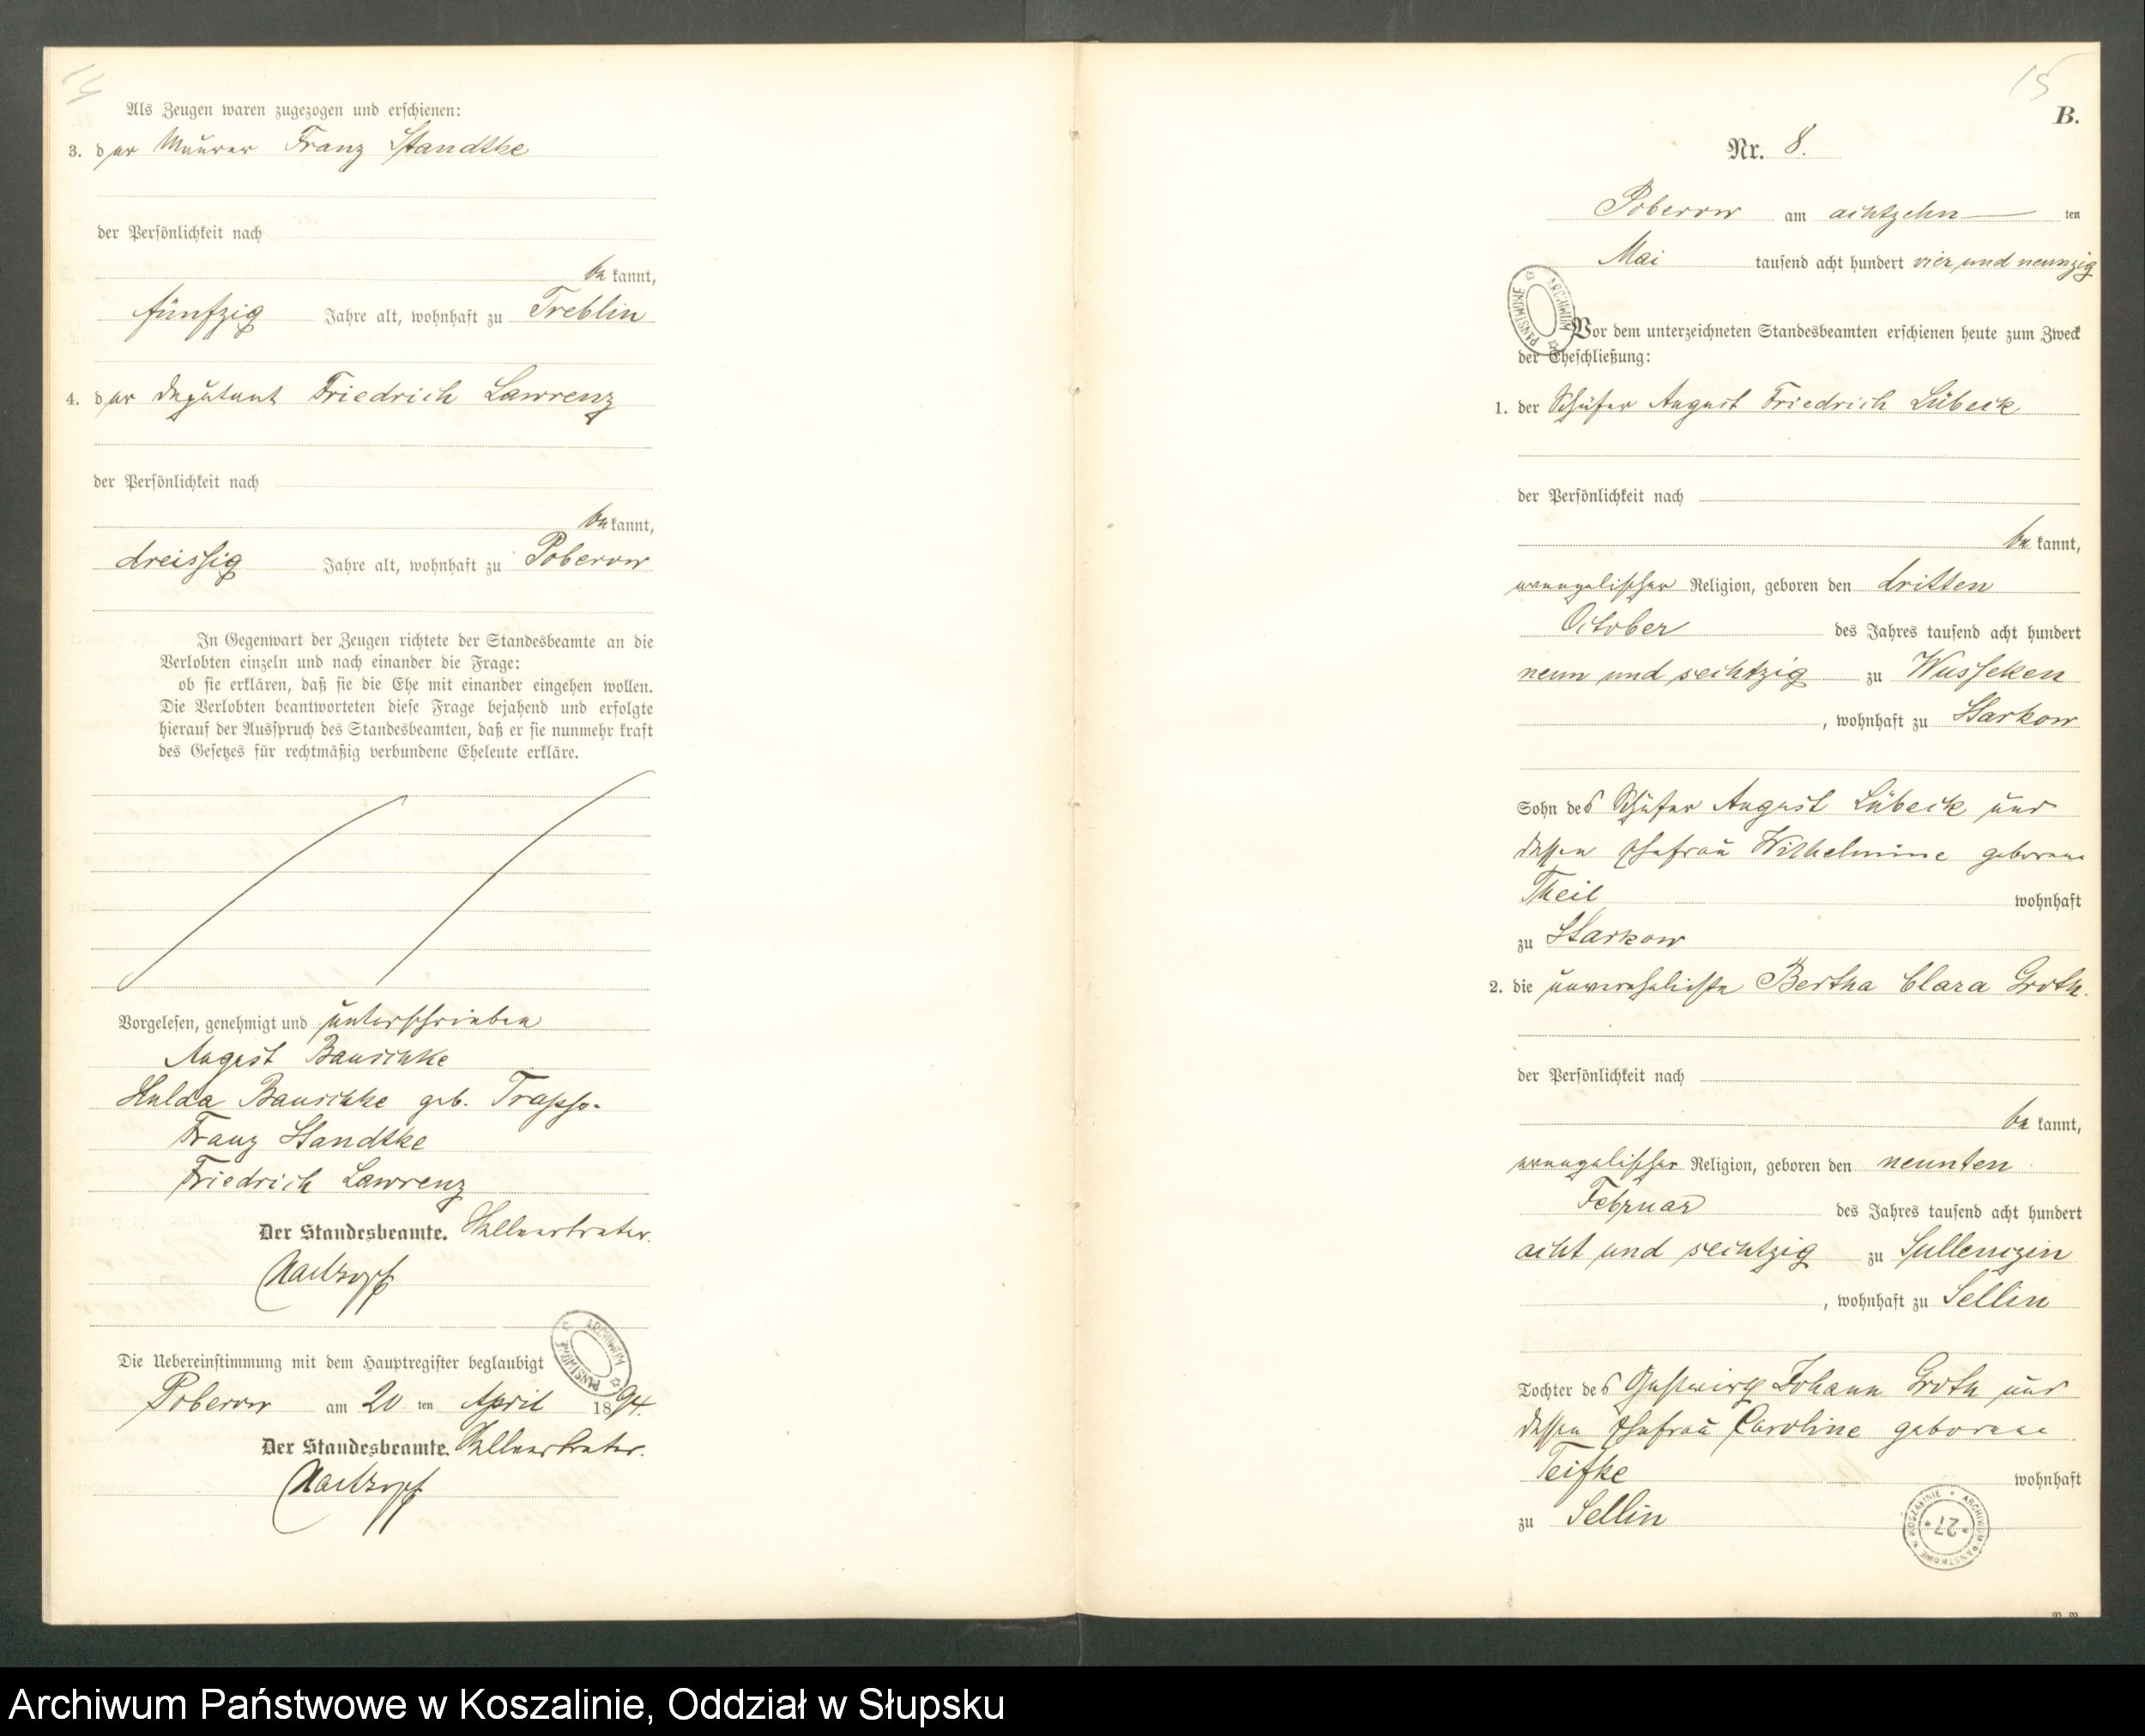 14
Als Zeugen waren zugezogen und erschienen:
3. der Maurer Franz Standtke
der Persönlichkeit nach
be kannt,
fünfzig Jahre alt, wohnhaft zu Treblin
4. der Deputant Friedrich Lawrenz
der Persönlichkeit nach
be kannt,
dreissig Jahre alt, wohnhaft zu Poberow
In Gegenwart der Zeugen richtete der Standesbeamte an die
Verlobten einzeln und nach einander die Frage:
ob sie erklären, daß sie die Ehe mit einander eingehen wollen.
Die Verlobten beantworteten diese Frage bejahend und erfolgte
hierauf der Ausspruch des Standesbeamten, daß er sie nunmehr kraft
des Gesetzes für rechtmäßig verbundene Eheleute erkläre.
Vorgelesen, genehmigt und unterschrieben
August Bauschke
Hulda Bauschke geb.
Franz Standtke
Friedrich Lawrenz
Der Standesbeamte. Stellvertreter.
Die Uebereinstimmung mit dem Hauptregister beglaubigt
Poberow am 20 ten April 1894.
Der Standesbeamte. Stellvertreter.
ARCHIWUM PAŃSTWOWE
15
B.
Nr. 8.
Poberow am achtzehn ten
Mai tausend acht hundert vier und neunzig
ARCHIWUM PAŃSTWOWE
Vor dem unterzeichneten Standesbeamten erschienen heute zum Zweck
der Eheschließung:
1. der Schäfer August Friedrich Lübeck
der Persönlichkeit nach
be kannt,
evangelischer Religion, geboren den dritten
October des Jahres tausend acht hundert
neun und sechtzig zu Wusseken
, wohnhaft zu Starkow
Sohn des Schäfer August Lübeck und
dessen Ehefrau Wilhelmine geborene
Theil wohnhaft
zu Starkow
2. die unverehelichte Bertha Clara Groth.
der Persönlichkeit nach
be kannt,
evangelischer Religion, geboren den neunten
Februar des Jahres tausend acht hundert
acht und sechtzig zu Sullenczin
, wohnhaft zu Sellin
Tochter des Gastwirth Johann Groth und
dessen Ehefrau Caroline geborene
Teifke wohnhaft
zu Sellin
ARCHIWUM PAŃSTWOWE W KOSZALINIE * 27 *
Archiwum Państwowe w Koszalinie, Oddział w Słupsku